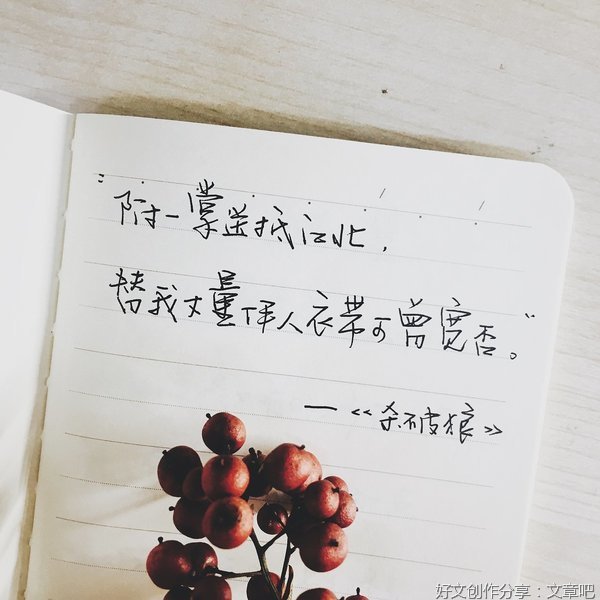 "附一掌送抵江北,
替我丈量伊人衣带可曾宽否。"
—《杀破狼》
好文创作分享：文章吧